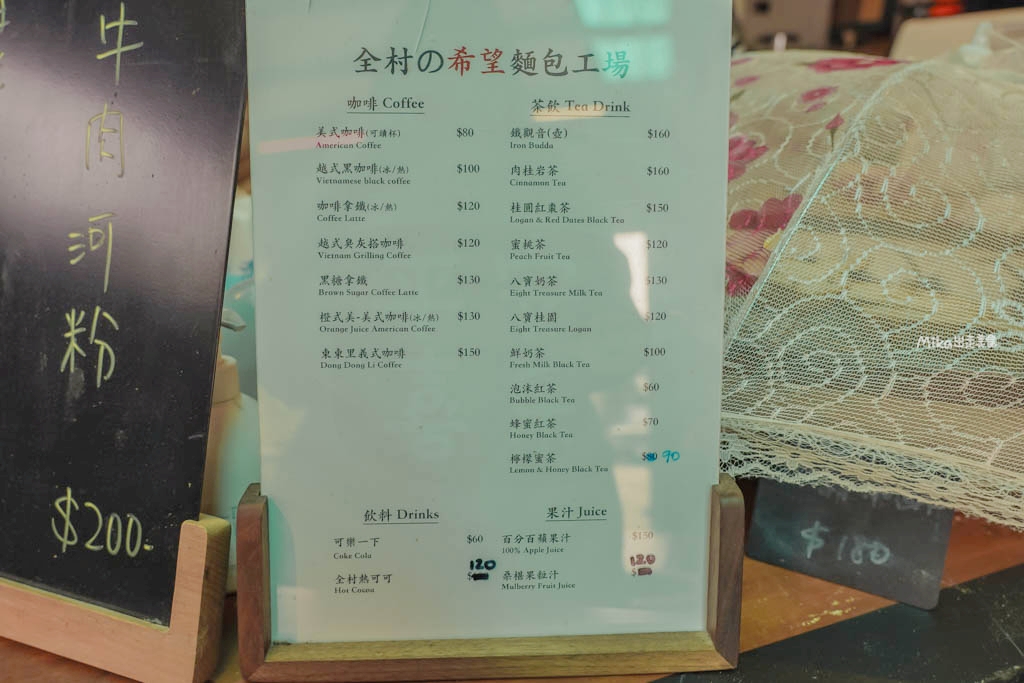 牛肉河粉
$200.
全村の希望麵包工場
咖啡 Coffee
美式咖啡(可續杯) $80
American Coffee
越式黑咖啡(冰/熱) $100
Vietnamese black coffee
咖啡拿鐵(冰/熱) $120
Coffee Latte
越式炭灰搭咖啡 $120
Vietnam Grilling Coffee
黑糖拿鐵 $130
Brown Sugar Coffee Latte
橙式美-美式咖啡(冰/熱) $130
Orange Juice American Coffee
東東里義式咖啡 $150
Dong Dong Li Coffee
茶飲 Tea Drink
鐵觀音(壺) $160
Iron Budda
肉桂岩茶 $160
Cinnamon Tea
桂圓紅棗茶 $150
Logan & Red Dates Black Tea
蜜桃茶 $120
Peach Fruit Tea
八寶奶茶 $130
Eight Treasure Milk Tea
八寶桂圓 $120
Eight Treasure Logan
鮮奶茶 $100
Fresh Milk Black Tea
泡沫紅茶 $60
Bubble Black Tea
蜂蜜紅茶 $70
Honey Black Tea
檸檬蜜茶 $80 90
Lemon & Honey Black Tea
飲料 Drinks
可樂一下 $60
Coke Cola
全村熱可可 $ 120
Hot Cocoa
果汁 Juice
百分百蘋果汁 $150
100% Apple Juice
桑椹果粒汁 $ 120
Mulberry Fruit Juice
$180
Mika出走美旅